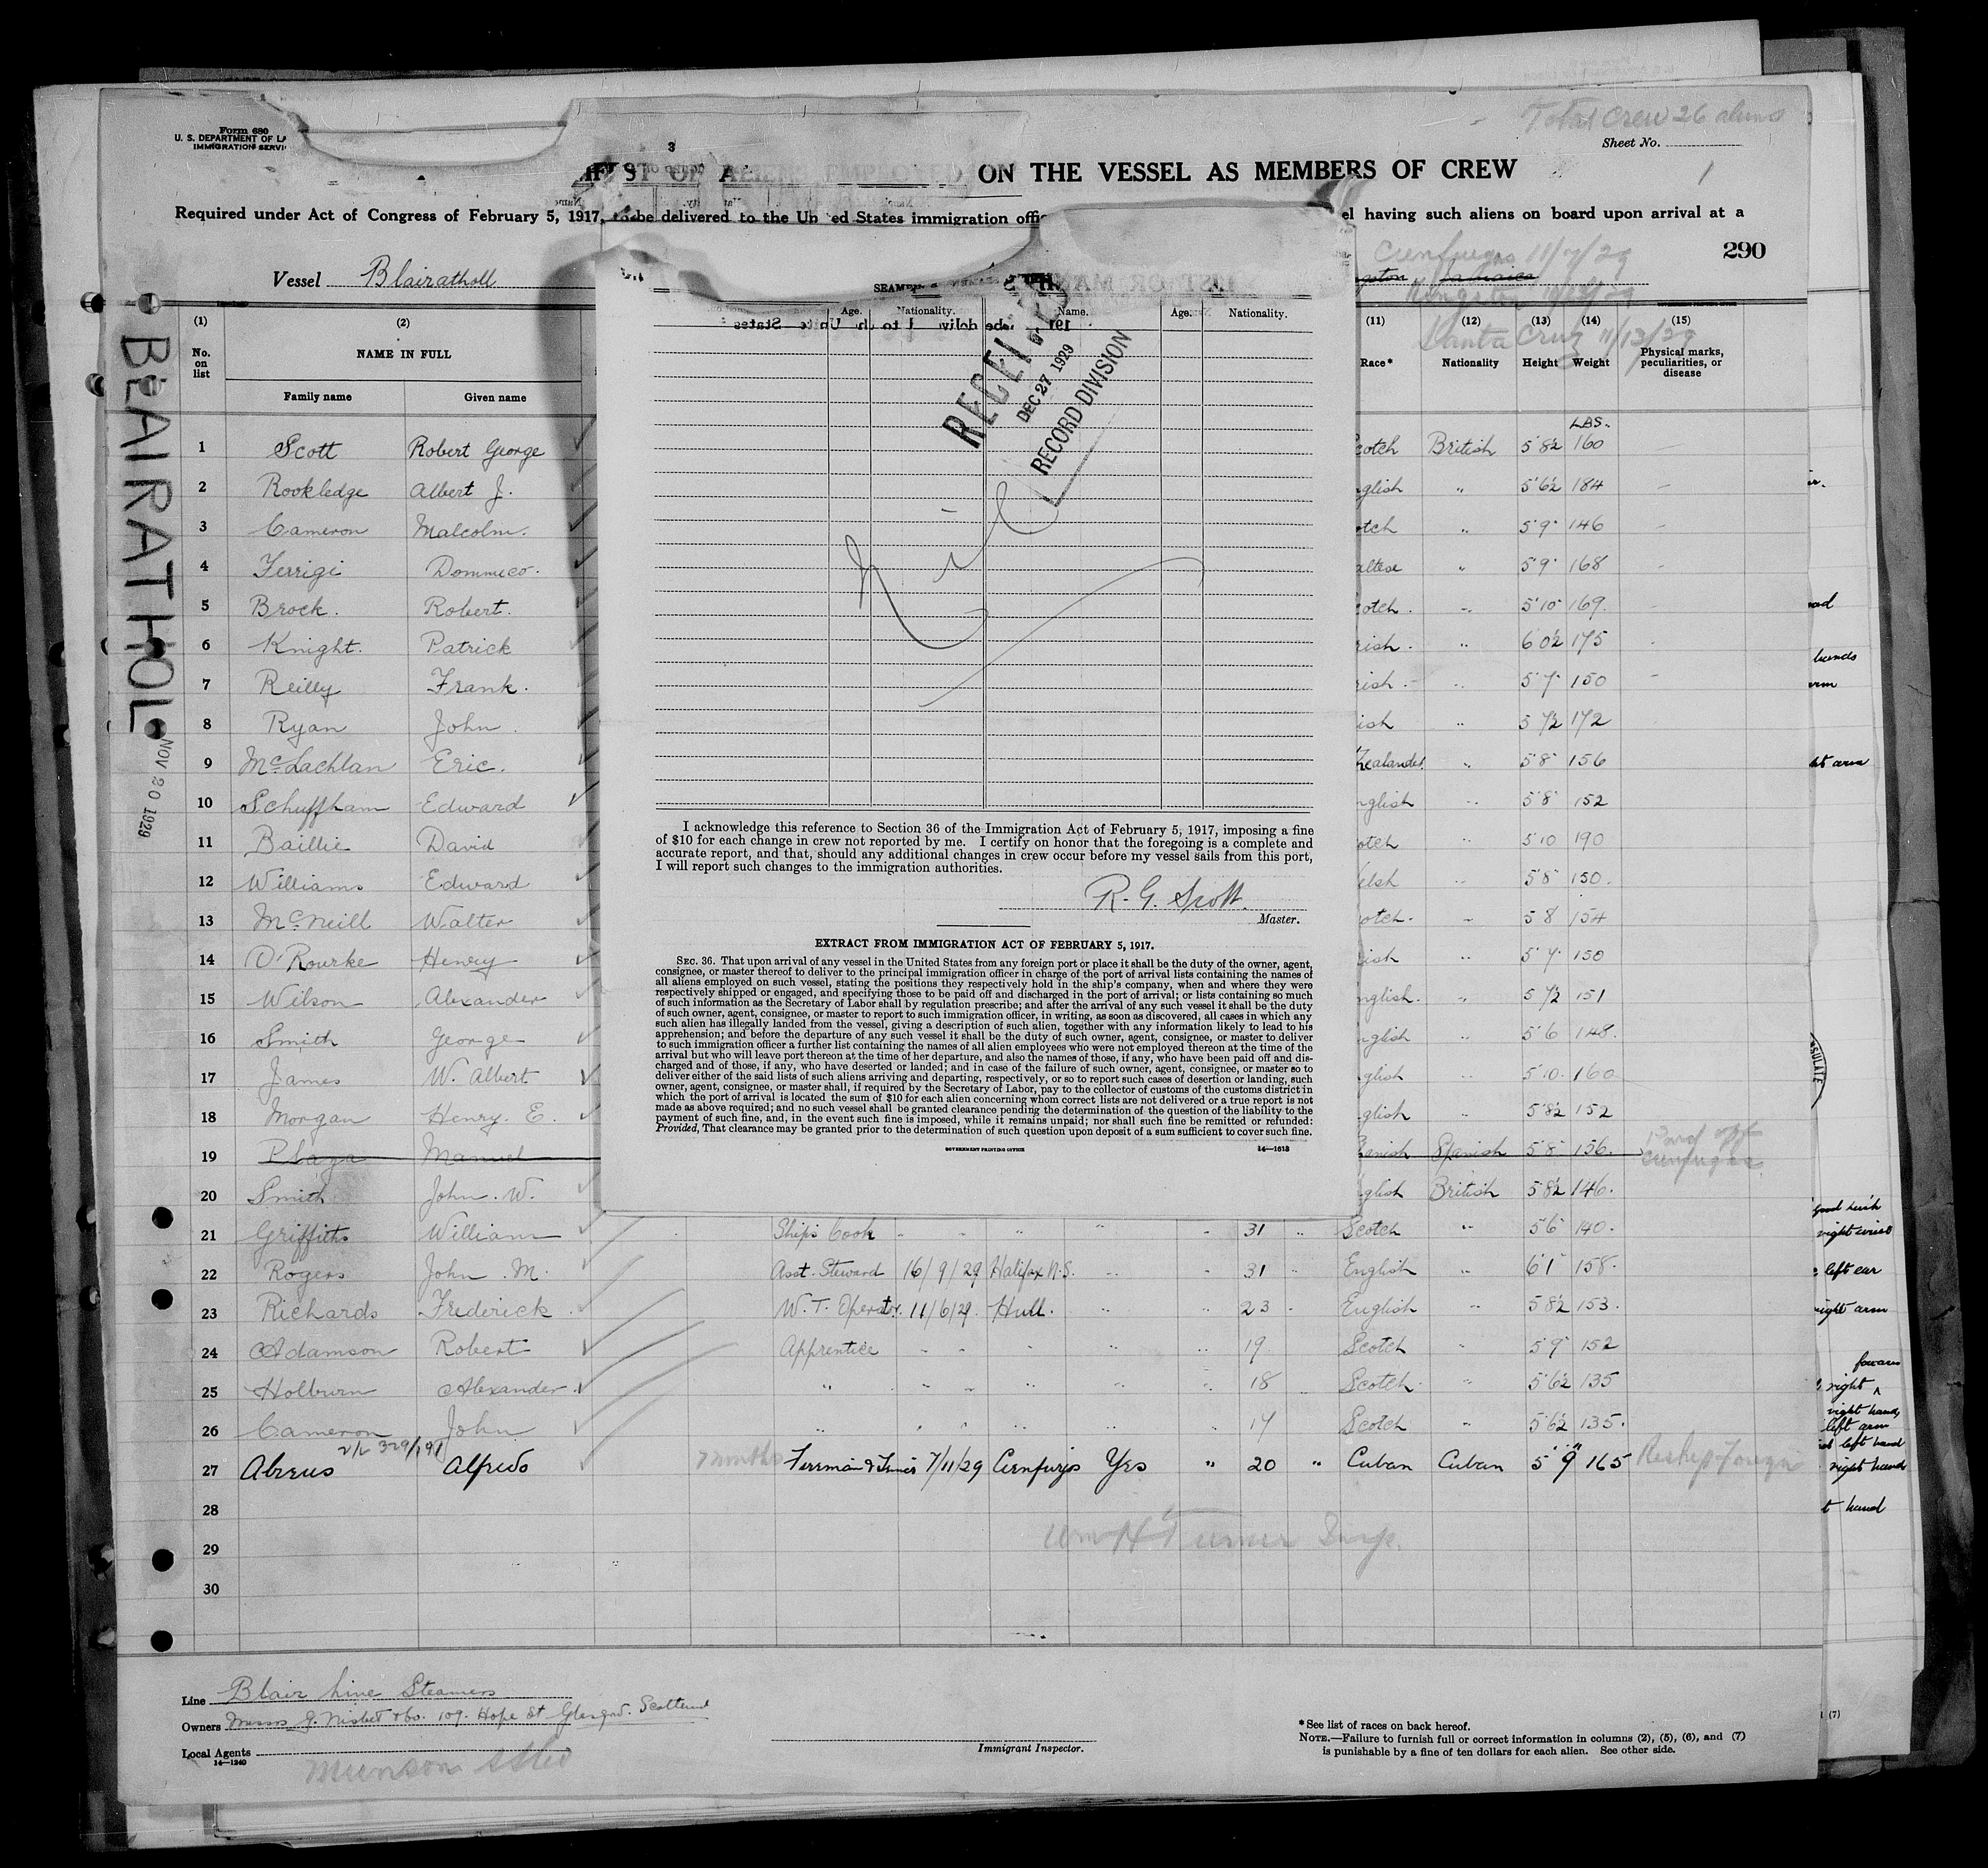 Total Crew 26 aliens
Form 680
U. S. DEPARTMENT OF LA
IMMIGRATION SERVI
Sheet No.
1
3
ON THE VESSEL AS MEMBERS OF CREW
Required under Act of Congress of February 5, 1917, to be delivered to the United States immigration offi
el having such aliens on board upon arrival at a
290
Vessel Blairatholl
Cienfuegos 11/7/29
gston Jamaica
Kingston
Santa Cruz 11/13/29
(1) (2) (11) (12) (13) (14) (15)
No. on list
NAME IN FULL
Family name Given name
Race* Nationality Height Weight Physical marks, peculiarities, or disease
LBS.
1 Scott Robert George cotch British 5 8½ 160
2 Rookledge Albert J. nglish " 5 6½ 184
3 Cameron Malcolm. otch " 5 9 146
4 Ferrigi Dominico. altese " 5 9 168
5 Brock. Robert. cotch. " 5 10 169.
6 Knight. Patrick rish. " 6 0½ 175
7 Reilly Frank. rish. " 5 7 150
8 Ryan John ish " 5 7½ 172
9 McLachlan Eric. Zealander " 5 8 156
10 Schuffham Edward nglish " 5 8 152
11 Baillie David otch " 5 10 190
12 Williams Edward elsh " 5 8 150.
13 McNeill Walter otch. " 5 8 154
14 O'Rourke Henry ish " 5 7 150
15 Wilson Alexander nglish. " 5 7½ 151
16 Smith George nglish " 5 6 148.
17 James W. Albert glish " 5 10. 160
18 Morgan Henry. E. glish " 5 8½ 152
19 Plaza Manuel anish Spanish 5 8 156. Paid off Cienfuegos
20 Smith John. W. glish British 5 8½ 146.
21 Griffiths William Ships Cook - - " " " 31 " Scotch " 5 6 140.
22 Rogers John. M. Asst. Steward 16/9/29 Halifax N.S. " " 31 " English " 6 1 158.
23 Richards Frederick W. T. Operator. 11/6/29. Hull. " " 23 " English " 5 8½ 153.
24 Adamson Robert Apprentice - - - " " 19 Scotch " 5 9 152
25 Holburn Alexander. " " " " " " 18 " Scotch " 5 6½ 135
26 Cameron John " " " " " " 17 Scotch " 5 6½ 135.
27 Abreus Alfredo 7 months 7/11/29 Cienfurjos Yes " 20 " Cuban Cuban 5' 9" 165
28
29
30
Wm H Turner Insp.
SEAMEN
Name. Age. Nationality. Name. Age. Nationality.
RECEIVED
DEC 27 1929
RECORD DIVISION
Nil
I acknowledge this reference to Section 36 of the Immigration Act of February 5, 1917, imposing a fine
of $10 for each change in crew not reported by me. I certify on honor that the foregoing is a complete and
accurate report, and that, should any additional changes in crew occur before my vessel sails from this port,
I will report such changes to the immigration authorities.
R. G. Scott.
Master.
EXTRACT FROM IMMIGRATION ACT OF FEBRUARY 5, 1917.
SEC. 36. That upon arrival of any vessel in the United States from any foreign port or place it shall be the duty of the owner, agent,
consignee, or master thereof to deliver to the principal immigration officer in charge of the port of arrival lists containing the names of
all aliens employed on such vessel, stating the positions they respectively hold in the ship's company, when and where they were
respectively shipped or engaged, and specifying those to be paid off and discharged in the port of arrival; or lists containing so much
of such information as the Secretary of Labor shall by regulation prescribe; and after the arrival of any such vessel it shall be the duty
of such owner, agent, consignee, or master to report to such immigration officer, in writing, as soon as discovered, all cases in which any
such alien has illegally landed from the vessel, giving a description of such alien, together with any information likely to lead to his
apprehension; and before the departure of any such vessel it shall be the duty of such owner, agent, consignee, or master to deliver
to such immigration officer a further list containing the names of all alien employees who were not employed thereon at the time of the
arrival but who will leave port thereon at the time of her departure, and also the names of those, if any, who have been paid off and dis-
charged and of those, if any, who have deserted or landed; and in case of the failure of such owner, agent, consignee, or master so to
deliver either of the said lists of such aliens arriving and departing, respectively, or so to report such cases of desertion or landing, such
owner, agent, consignee, or master shall, if required by the Secretary of Labor, pay to the collector of customs of the customs district in
which the port of arrival is located the sum of $10 for each alien concerning whom correct lists are not delivered or a true report is not
made as above required; and no such vessel shall be granted clearance pending the determination of the question of the liability to the
payment of such fine, and, in the event such fine is imposed, while it remains unpaid; nor shall such fine be remitted or refunded:
Provided, That clearance may be granted prior to the determination of such question upon deposit of a sum sufficient to cover such fine.
GOVERNMENT PRINTING OFFICE 14—1613
BLAIRATHOL
NOV 20 1929
Line Blair Line Steamers
Owners Messrs G. Nisbet & Co. 109. Hope St Glasgow. Scotland
Local Agents Munson SS Co
14—1240
Immigrant Inspector.
*See list of races on back hereof.
NOTE.—Failure to furnish full or correct information in columns (2), (5), (6), and (7)
is punishable by a fine of ten dollars for each alien. See other side.
hands
arm
ht arm
SULATE
left ear
right arm
right
right hand,
left arm
left hand
right hand
t hand
(7)